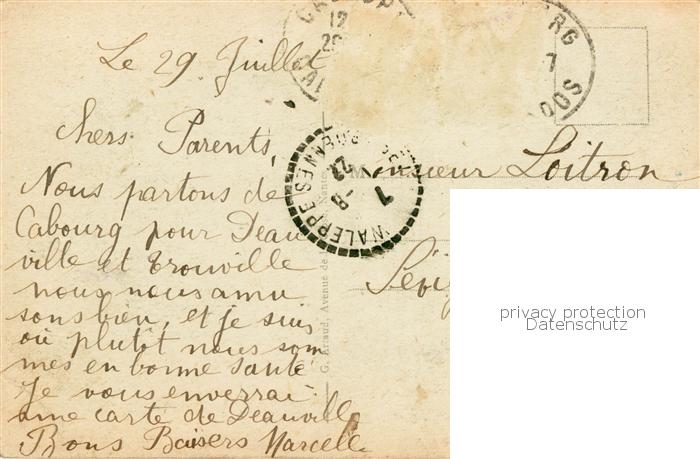 Le 29 Juillet
Chers Parents,
Nous partons de
Cabourg pour Deau
ville et Trouville
nous nous amu
sons bien, et je suis
où plutôt nous som
mes en bonne santé
Je vous enverrai
une carte de Deauville
Bons Baisers Marcelle
Monsieur Loitron
12
29
7
DOS
1
-8
23
G. Artaud, Avenue de
privacy protection
Datenschutz